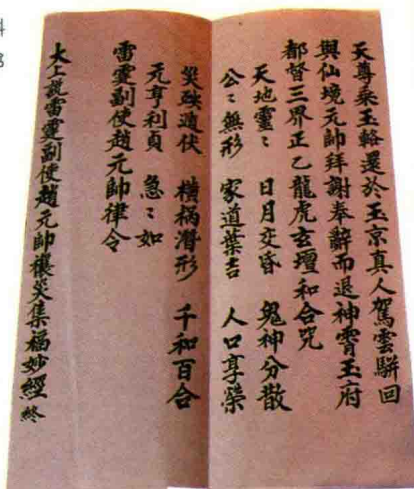 天尊乘玉輅還於玉京真人駕雲駢回
與仙境元帥拜謝奉辭而退神霄玉府
都督三界正乙龍虎玄壇和合咒
天地靈〻 日月交昏 鬼神分散
公〻無形 家道葉吉 人口享榮
災殃遁伏 橫禍潛形 千和百合
元亨利貞 急〻如
雷霆副使趙元帥律令
太上說雷霆副使趙元帥禳災集福妙經 終